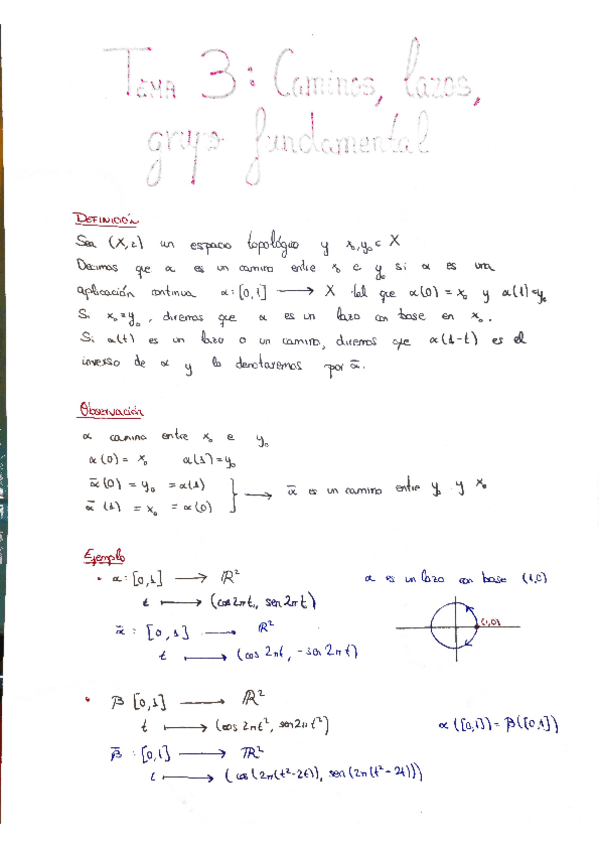 Tema 3: Caminos, lazos,
grupo fundamental
DEFINICIÓN
Sea (X,τ) un espacio topológico y x₀,y₀ ∈ X
Decimos que α es un camino entre x₀ e y₀ si α es una
aplicación continua α:[0,1] ⟶ X tal que α(0)=x₀ y α(1)=y₀
Si x₀=y₀, diremos que α es un lazo con base en x₀.
Si α(t) es un lazo o un camino, diremos que α(1-t) es el
inverso de α y lo denotaremos por ᾱ.
Observación
α camino entre x₀ e y₀
α(0) = x₀ α(1)=y₀
ᾱ(0) = y₀ = α(1)
ᾱ(1) = x₀ = α(0) } ⟶ ᾱ es un camino entre y₀ y x₀
Ejemplo
• α:[0,1] ⟶ ℝ² α es un lazo con base (1,0)
t ⟼ (cos2πt, sen2πt)
(1,0)
ᾱ: [0,1] ⟶ ℝ²
t ⟼ (cos 2πt, -sen 2πt)
• β [0,1] ⟶ ℝ²
t ⟼ (cos 2πt², sen2πt²) α([0,1]) = β([0,1])
β̄ : [0,1] ⟶ ℝ²
t ⟼ (cos(2π(t²-2t)), sen(2π(t²-2t)))